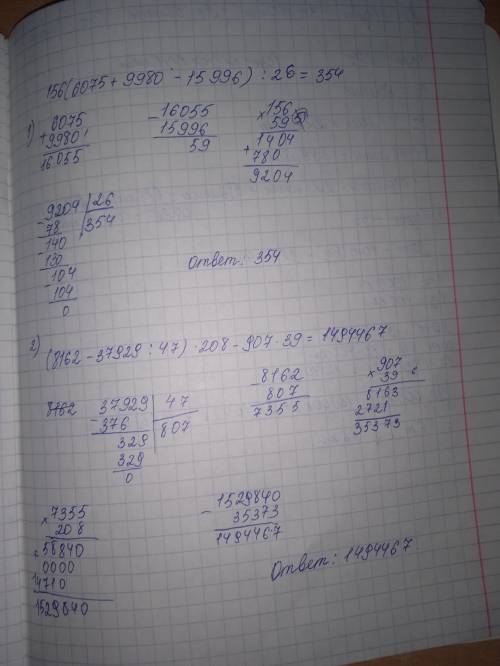 156(6075 + 9980 - 15996) : 26 = 354
1)
6075
+ 9980
16055
- 16055
15996
59
× 156
59
1404
+ 780
9204
- 9204 | 26
78 354
- 140
130
- 104
104
0
Ответ: 354
2) (8162 - 37929 : 47) · 208 - 907 · 39 = 1494467
8162
- 37929 | 47
376 807
329
329
0
- 8162
807
7355
× 907
39
8163
2721
35373
× 7355
208
+ 58840
0000
14710
1529840
- 1529840
35373
1494467
Ответ: 1494467